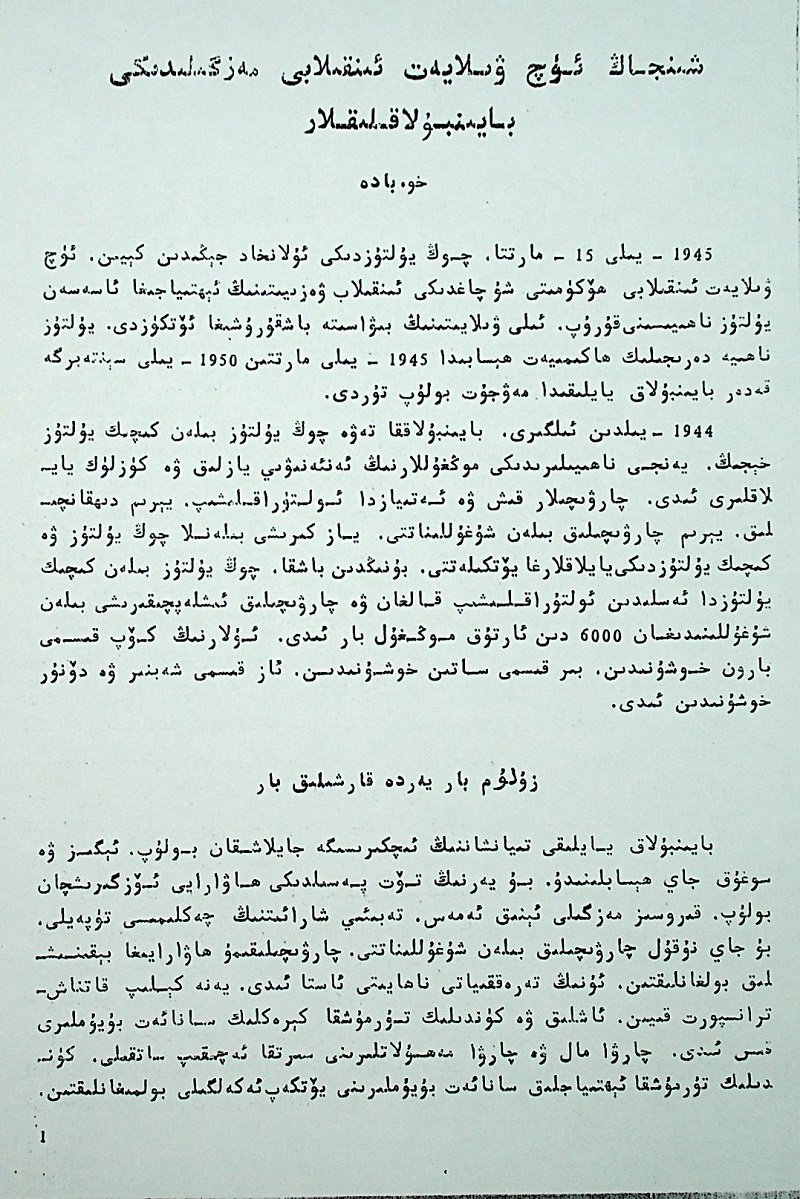 شىنجاڭ ئۈچ ۋىلايەت ئىنقىلابى مەزگىلىدىكى
بايىنبۇلاقلىقلار
خو، بادە
1945 ـ يىلى 15 ـ مارتتا، چوڭ يۇلتۇزدىكى ئۇلانخاد جېڭىدىن كېيىن، ئۈچ
ۋىلايەت ئىنقىلابى ھۆكۈمىتى شۇ چاغدىكى ئىنقىلاب ۋەزىيىتىنىڭ ئېھتىياجىغا ئاسەسەن
يۇلتۇز ناھىيىسىنى قۇرۇپ، ئىلى ۋىلايىتىنىڭ بىۋاستە باشقۇرۇشىغا ئۆتكۈزدى. يۇلتۇز
ناھىيە دەرىجىلىك ھاكىمىيەت ھېسابىدا 1945 ـ يىلى مارتتىن 1950 ـ يىلى سېنتەبرگە
قەدەر بايىنبۇلاق يايلىقىدا مەۋجۇت بولۇپ تۇردى.
1944 ـ يىلدىن ئىلگىرى، بايىنبۇلاققا تەۋە چوڭ يۇلتۇز بىلەن كىچىك يۇلتۇز
خېجىڭ، يەنجى ناھىيىلىرىدىكى موڭغۇللارنىڭ ئەنئەنىۋىي يازلىق ۋە كۈزلۈك يايـ
لاقلىرى ئىدى. چارۋىچىلار قىش ۋە ئەتىيازدا ئولتۇراقلىشىپ، يېرىم دىھقانچىـ
لىق، يېرىم چارۋىچىلىق بىلەن شۇغۇللىناتتى. ياز كىرىشى بىلەنلا چوڭ يۇلتۇز ۋە
كىچىك يۇلتۇزدىكى يايلاقلارغا يۆتكىلەتتى. بۇنىڭدىن باشقا، چوڭ يۇلتۇز بىلەن كىچىك
يۇلتۇزدا ئەسلىدىن ئولتۇراقلىشىپ قالغان ۋە چارۋىچىلىق ئىشلەپچىقىرىشى بىلەن
شۇغۇللىنىدىغان 6000 دىن ئارتۇق موڭغۇل بار ئىدى. ئۇلارنىڭ كۆپ قىسمى
بارون خوشۇنىدىن، بىر قىسمى ساتىن خوشۇنىدىن، ئاز قىسمى شەبنىر ۋە دۆنۈر
خوشۇنىدىن ئىدى.
زۇلۇم بار يەردە قارشىلىق بار
بايىنبۇلاق يايلىقى تىيانشاننىڭ ئىچكىرىسىگە جايلاشقان بولۇپ، ئېگىز ۋە
سوغۇق جاي ھېسابلىنىدۇ. بۇ يەرنىڭ تۆت پەسىلدىكى ھاۋارايى ئۆزگىرىشچان
بولۇپ، قىروسىز مەزگىلى ئېنىق ئەمەس. تەبىئىي شارائىتنىڭ چەكلىمىسى تۈپەيلى،
بۇ جاي نۇقۇل چارۋىچىلىق بىلەن شۇغۇللىناتتى. چارۋىچىلىقمۇ ھاۋارايىغا بېقىنىشـ
لىق بولغانلىقتىن، ئۇنىڭ تەرەققىياتى ناھايىتى ئاستا ئىدى. يەنە كېلىپ قاتناش‍ـ
ترانسپورت قىيىن، ئاشلىق ۋە كۈندىلىك تۇرمۇشقا كېرەكلىك سانائەت بۇيۇملىرى
قىس ئىدى. چارۋا مال ۋە چارۋا مەھسۇلاتلىرىنى سىرتقا ئەچىقىپ ساتقىلى، كۈنـ
دىلىك تۇرمۇشقا ئېھتىياجلىق سانائەت بۇيۇملىرىنى يۆتكەپ ئەكەلگىلى بولمىغانلىقتىن،
1